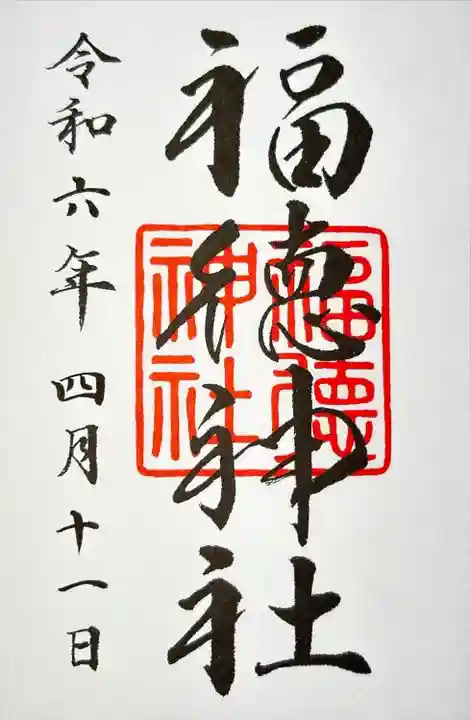 福徳神社
福徳
神社
令和六年四月十一日